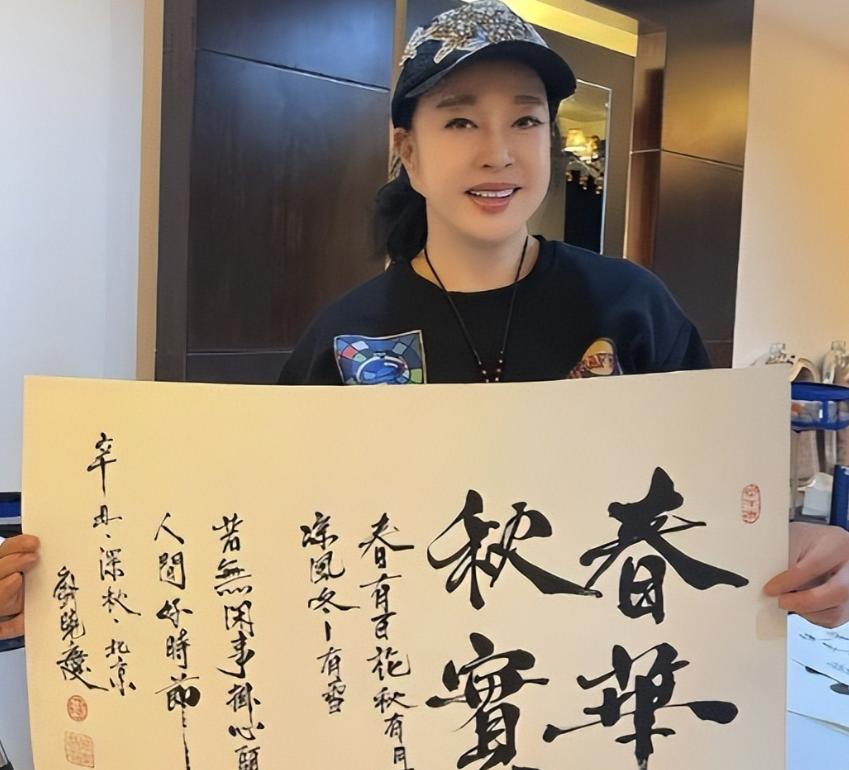 春華
秋實
春有百花秋有月
凉風冬有雪
若無闲事掛心頭
人間好時節
辛丑深秋北京
劉曉慶